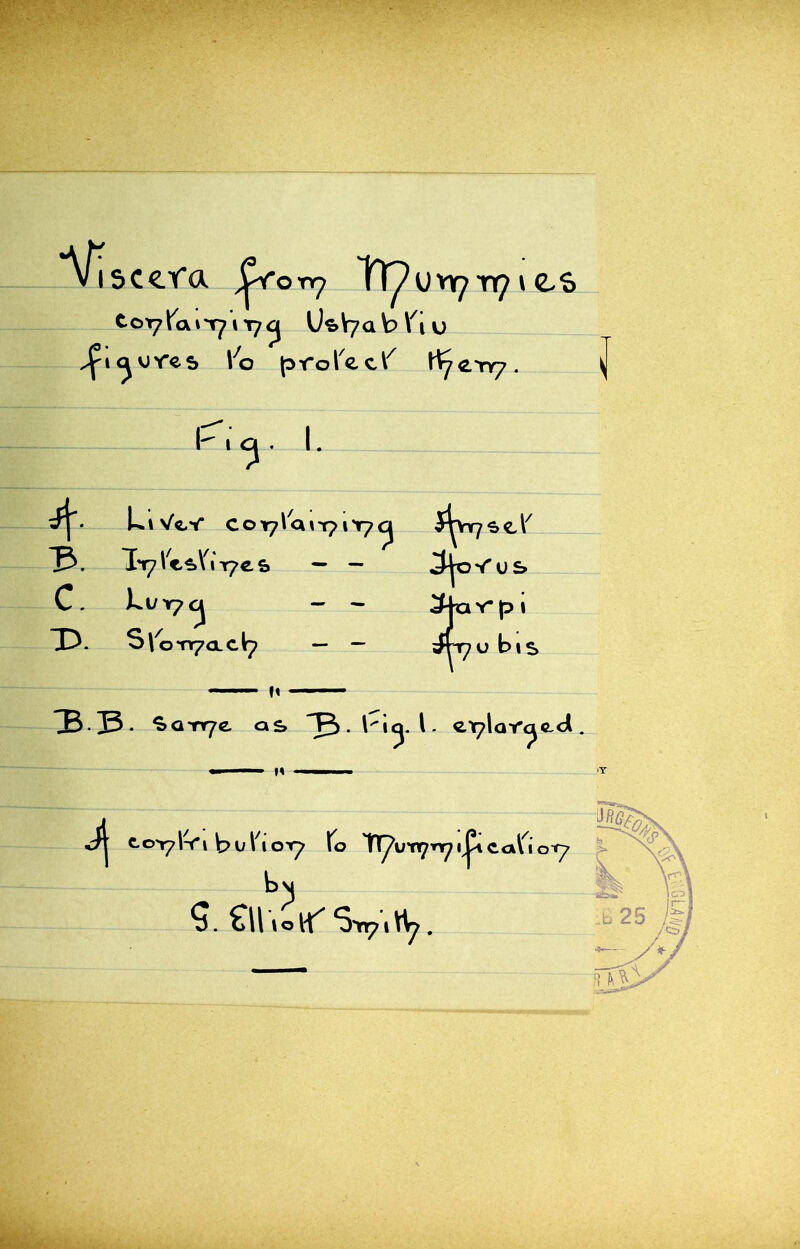 Viscera from Mummies
containing Ushabtiu
figures to protect them.
Fig. 1.
A. Liver containing Amset
B. Intestines - - Horus
C. Lung - - Harpi
D. Stomach - - Anubis
"
B.B. Same as B. Fig. 1. enlarged.
"
A contribution to Mummification
by
G. Elliott Smith.
OF ENGLAND
25